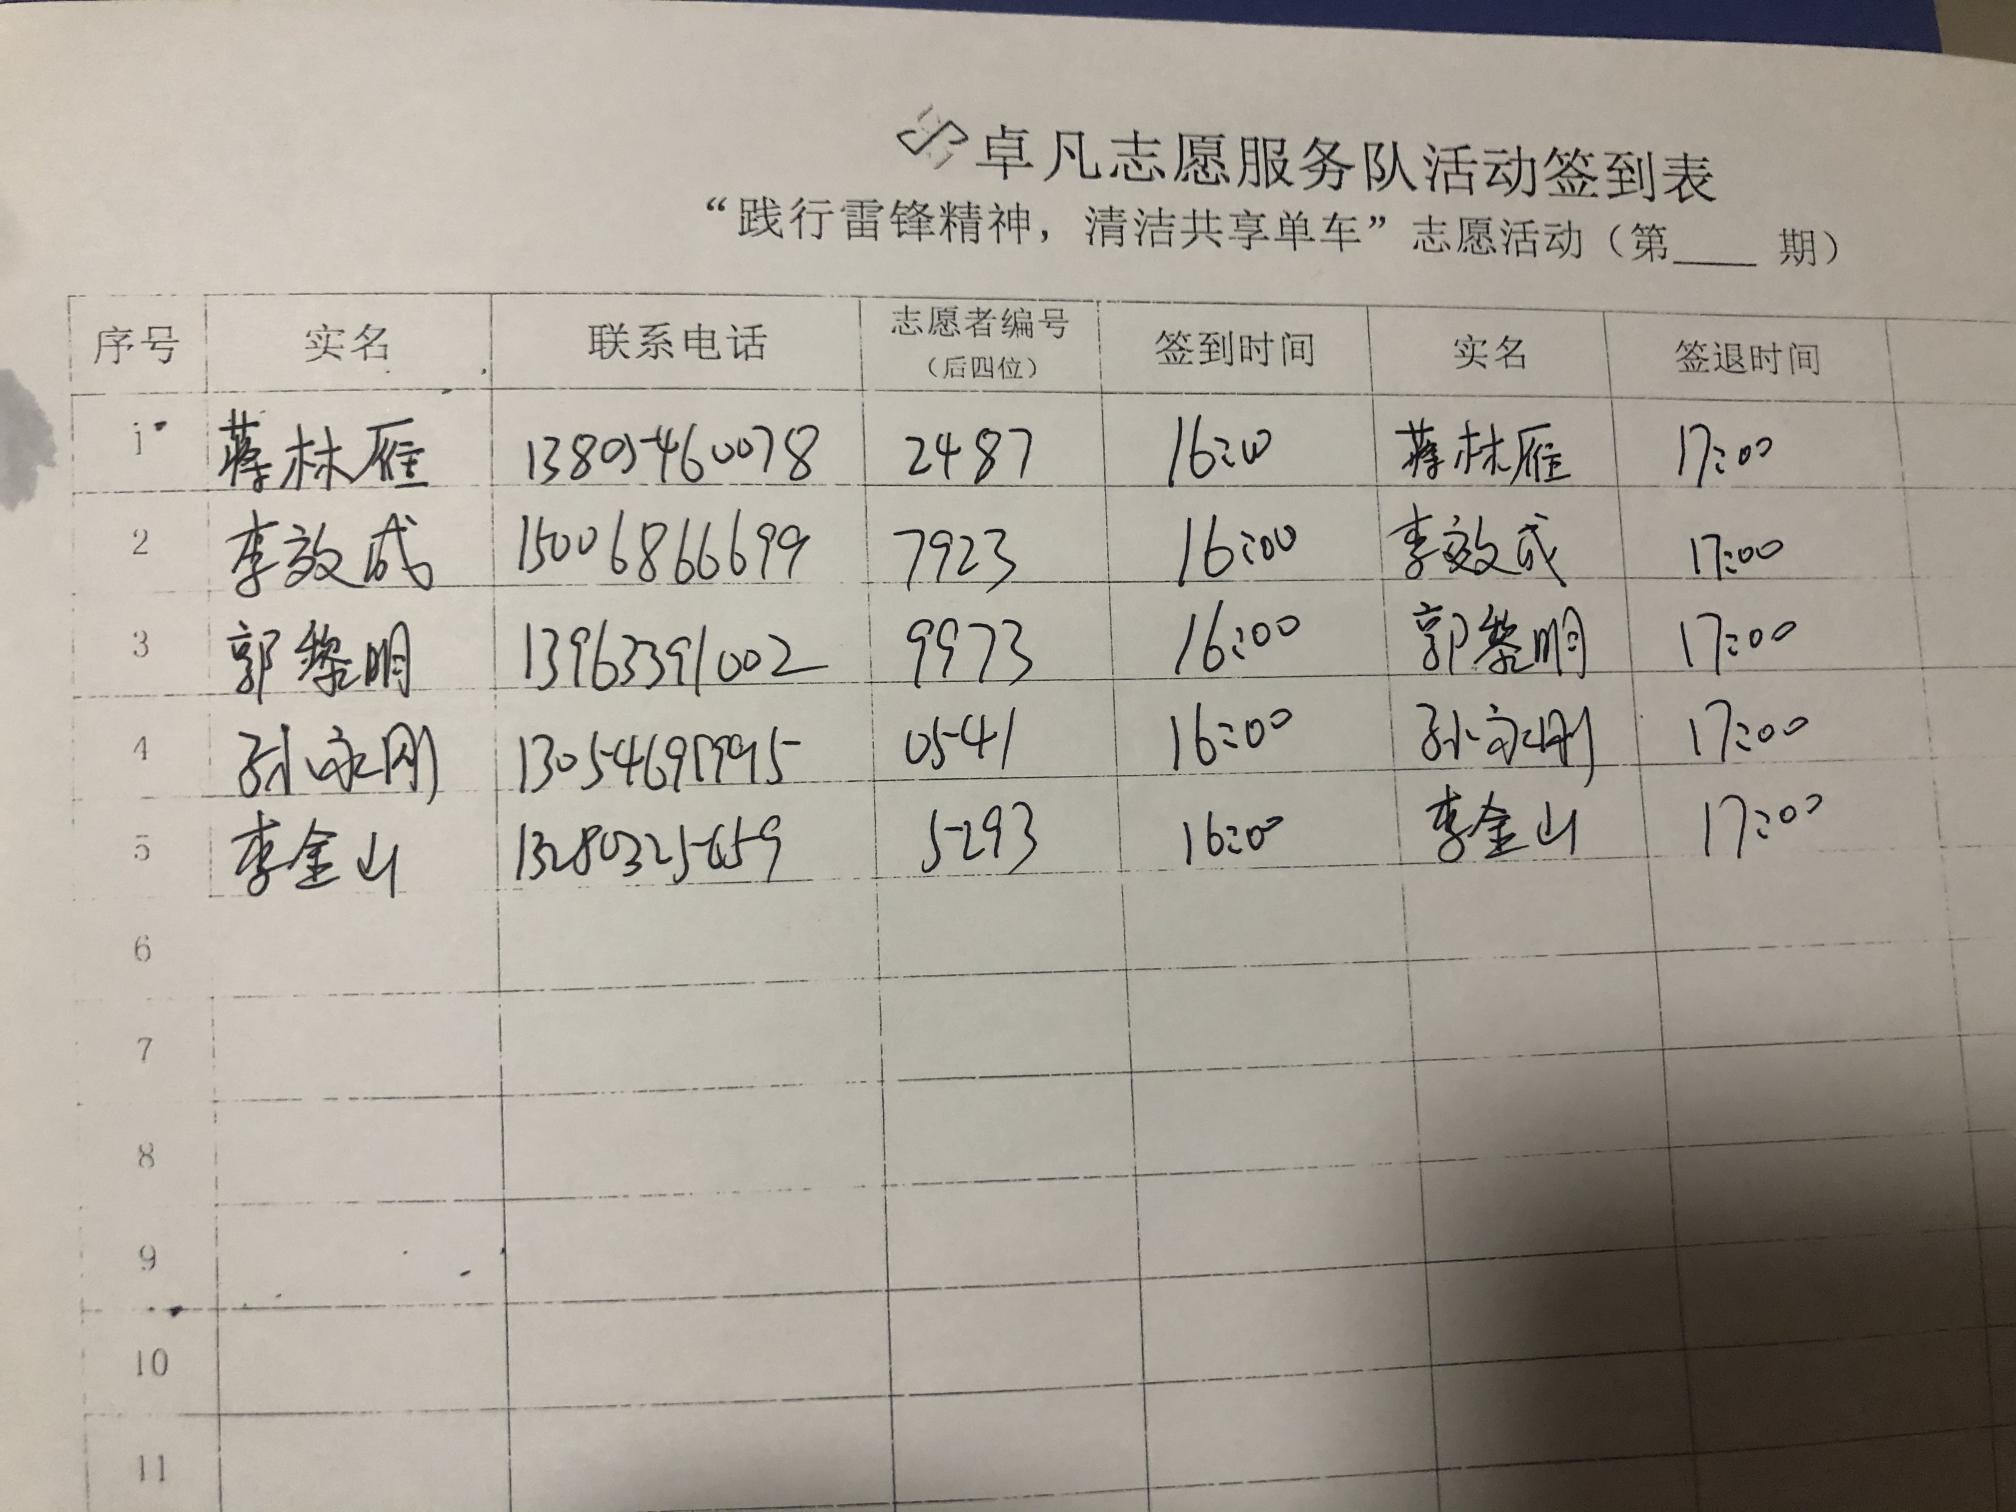 卓凡志愿服务队活动签到表
“践行雷锋精神，清洁共享单车”志愿活动（第____ 期）
序号 实名 联系电话 志愿者编号（后四位） 签到时间 实名 签退时间
1 蒋林雁 2487 16:00 蒋林雁 17:00
2 李效成 15006866699 7923 16:00 李效成 17:00
3 郭黎明 13963391002 9973 16:00 郭黎明 17:00
4 孙永刚 0541 16:00 孙永刚 17:00
5 李金山 5293 16:00 李金山 17:00
6
7
8
9
10
11